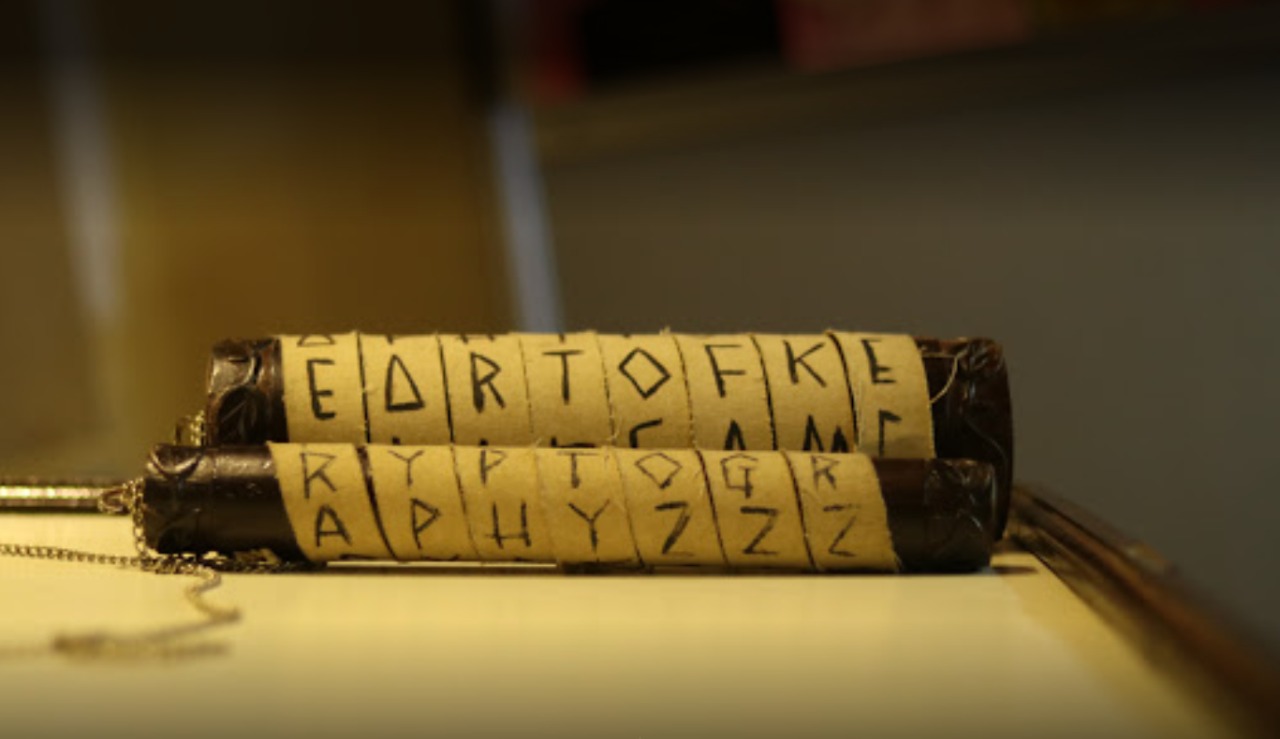 EARTOFKE
RYPTOGR
APHYZZZ